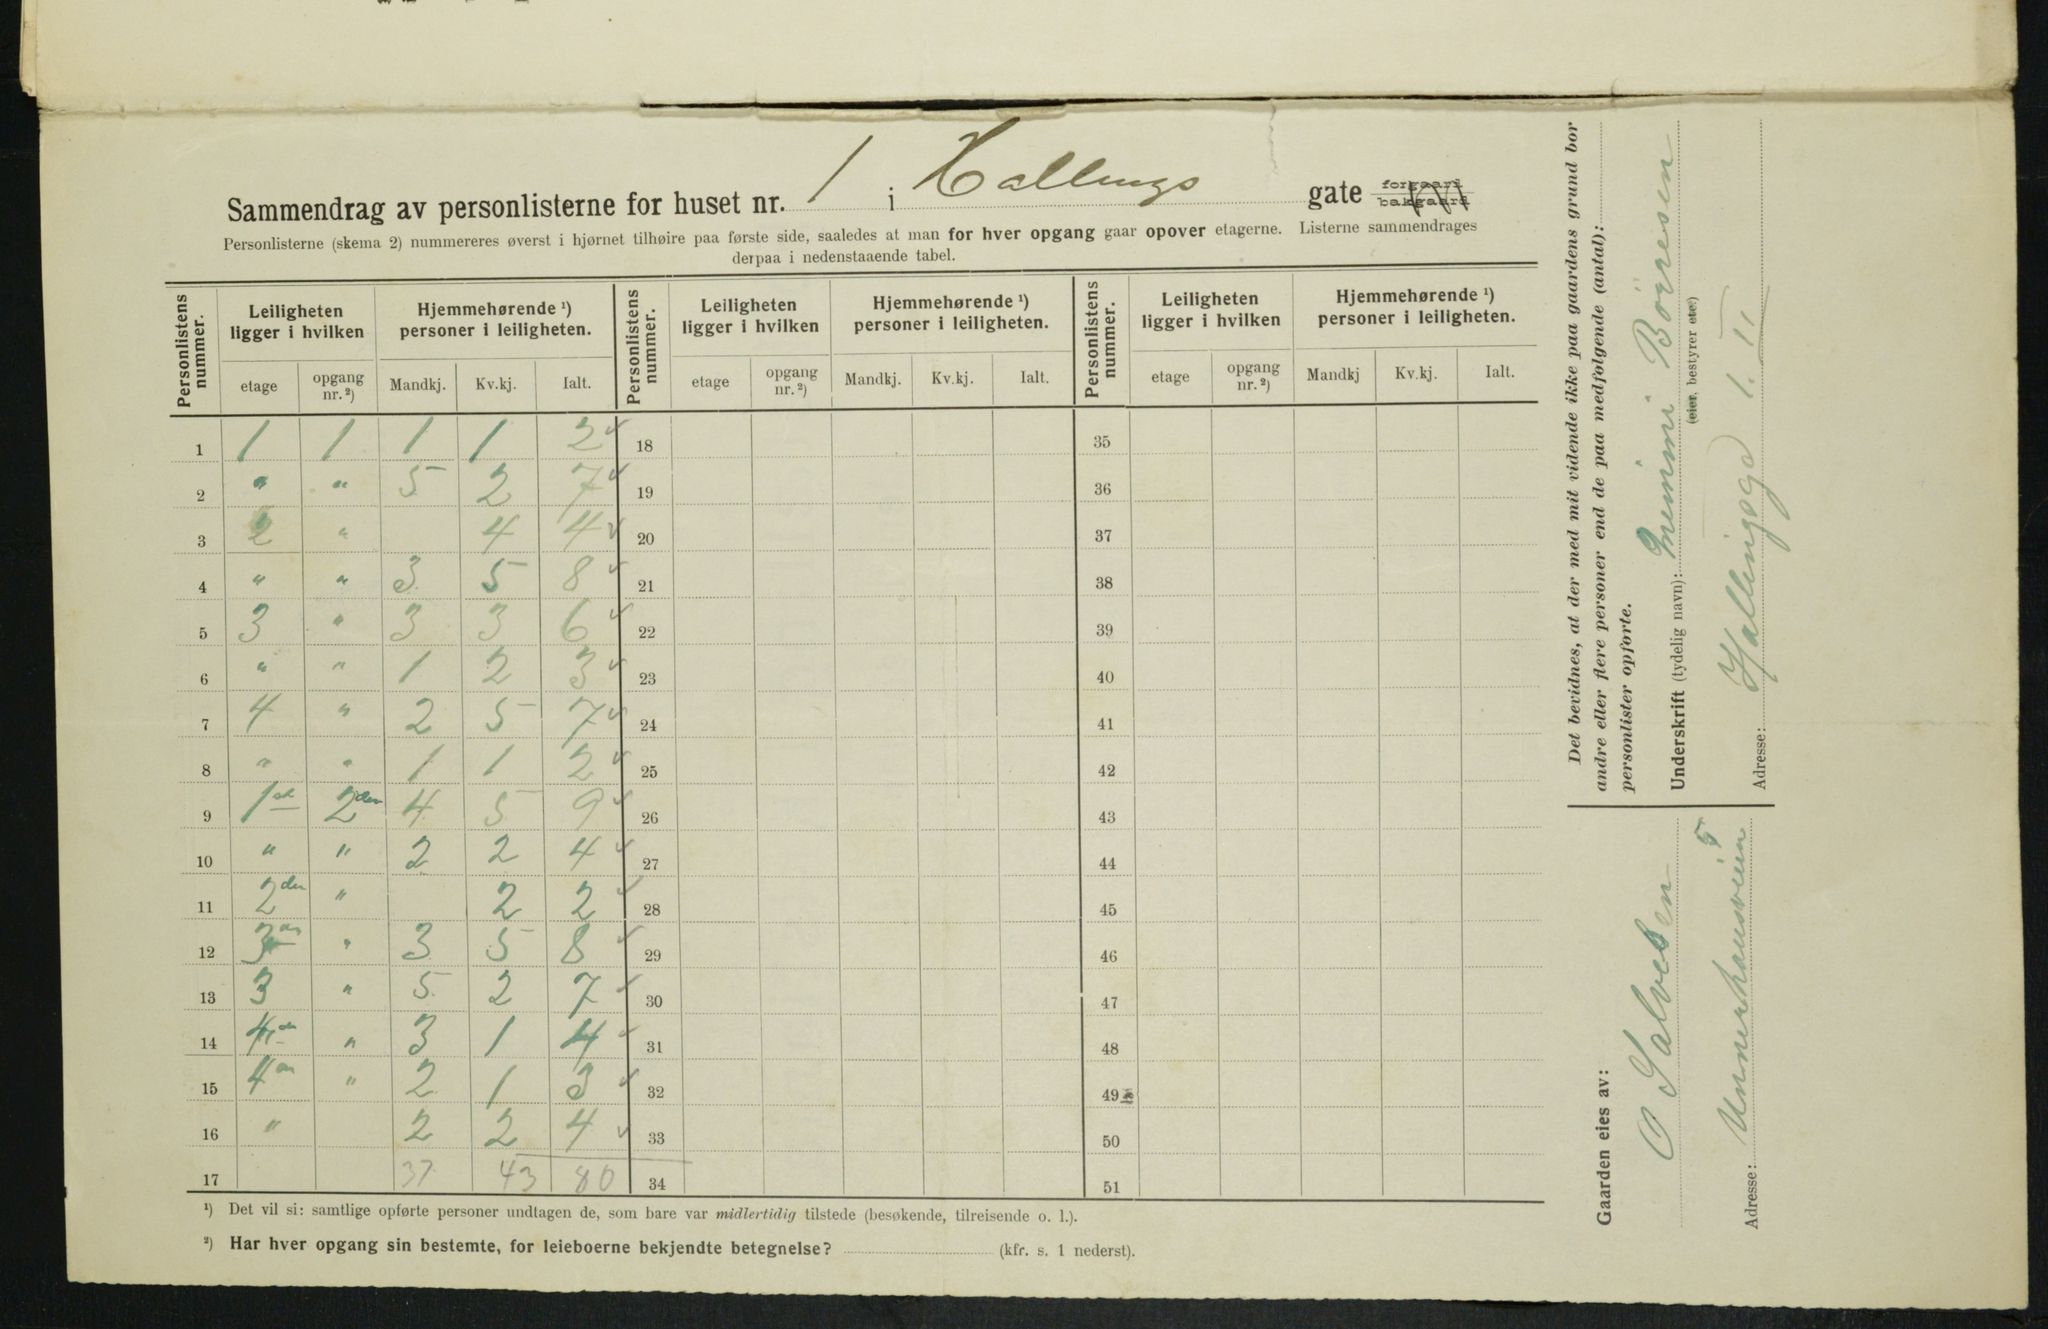 Sammendrag av personlisterne for huset nr. 1 i Hallings gate forgaard bakgaard
Personlisterne (skema 2) nummereres øverst i hjørnet tilhøire paa første side, saaledes at man for hver opgang gaar opover etagerne. Listerne sammendrages
derpaa i nedenstaaende tabel.
Personlistens nummer. Leiligheten ligger i hvilken Hjemmehørende ¹) personer i leiligheten. Personlistens nummer. Leiligheten ligger i hvilken Hjemmehørende ¹) personer i leiligheten. Personlistens nummer. Leiligheten ligger i hvilken Hjemmehørende ¹) personer i leiligheten.
etage opgang nr. ²) Mandkj. Kv.kj. Ialt. etage opgang nr. ²) Mandkj. Kv.kj. Ialt. etage opgang nr. ²) Mandkj Kv.kj. Ialt.
1 1 1 1 1 2 ✓ 18 35
2 " " 5 2 7 ✓ 19 36
3 2 " 4 4 ✓ 20 37
4 " " 3 5 8 ✓ 21 38
5 3 " 3 3 6 ✓ 22 39
6 " " 1 2 3 ✓ 23 40
7 4 " 2 5 7 ✓ 24 41
8 " " 1 1 2 ✓ 25 42
9 1st 2den 4 5 9 ✓ 26 43
10 " " 2 2 4 ✓ 27 44
11 2den " 2 2 ✓ 28 45
12 3 " 3 5 8 ✓ 29 46
13 3 " 5 2 7 ✓ 30 47
14 4 " 3 1 4 ✓ 31 48
15 4 " 2 1 3 ✓ 32 49
16 " 2 2 4 ✓ 33 50
17 37 43 80 34 51
¹) Det vil si: samtlige opførte personer undtagen de, som bare var midlertidig tilstede (besøkende, tilreisende o. l.).
²) Har hver opgang sin bestemte, for leieboerne bekjendte betegnelse? (kfr. s. 1 nederst).
Det bevidnes, at der med mit vidende ikke paa gaardens grund bor
andre eller flere personer end de paa medfølgende (antal):
personlister opførte.
Underskrift (tydelig navn): Mimmi Börresen
(eier, bestyrer etc.)
Adresse: Hallingsgd 1. II
Gaarden eies av:
O Salvesen
Adresse: Uranienhausveien 5